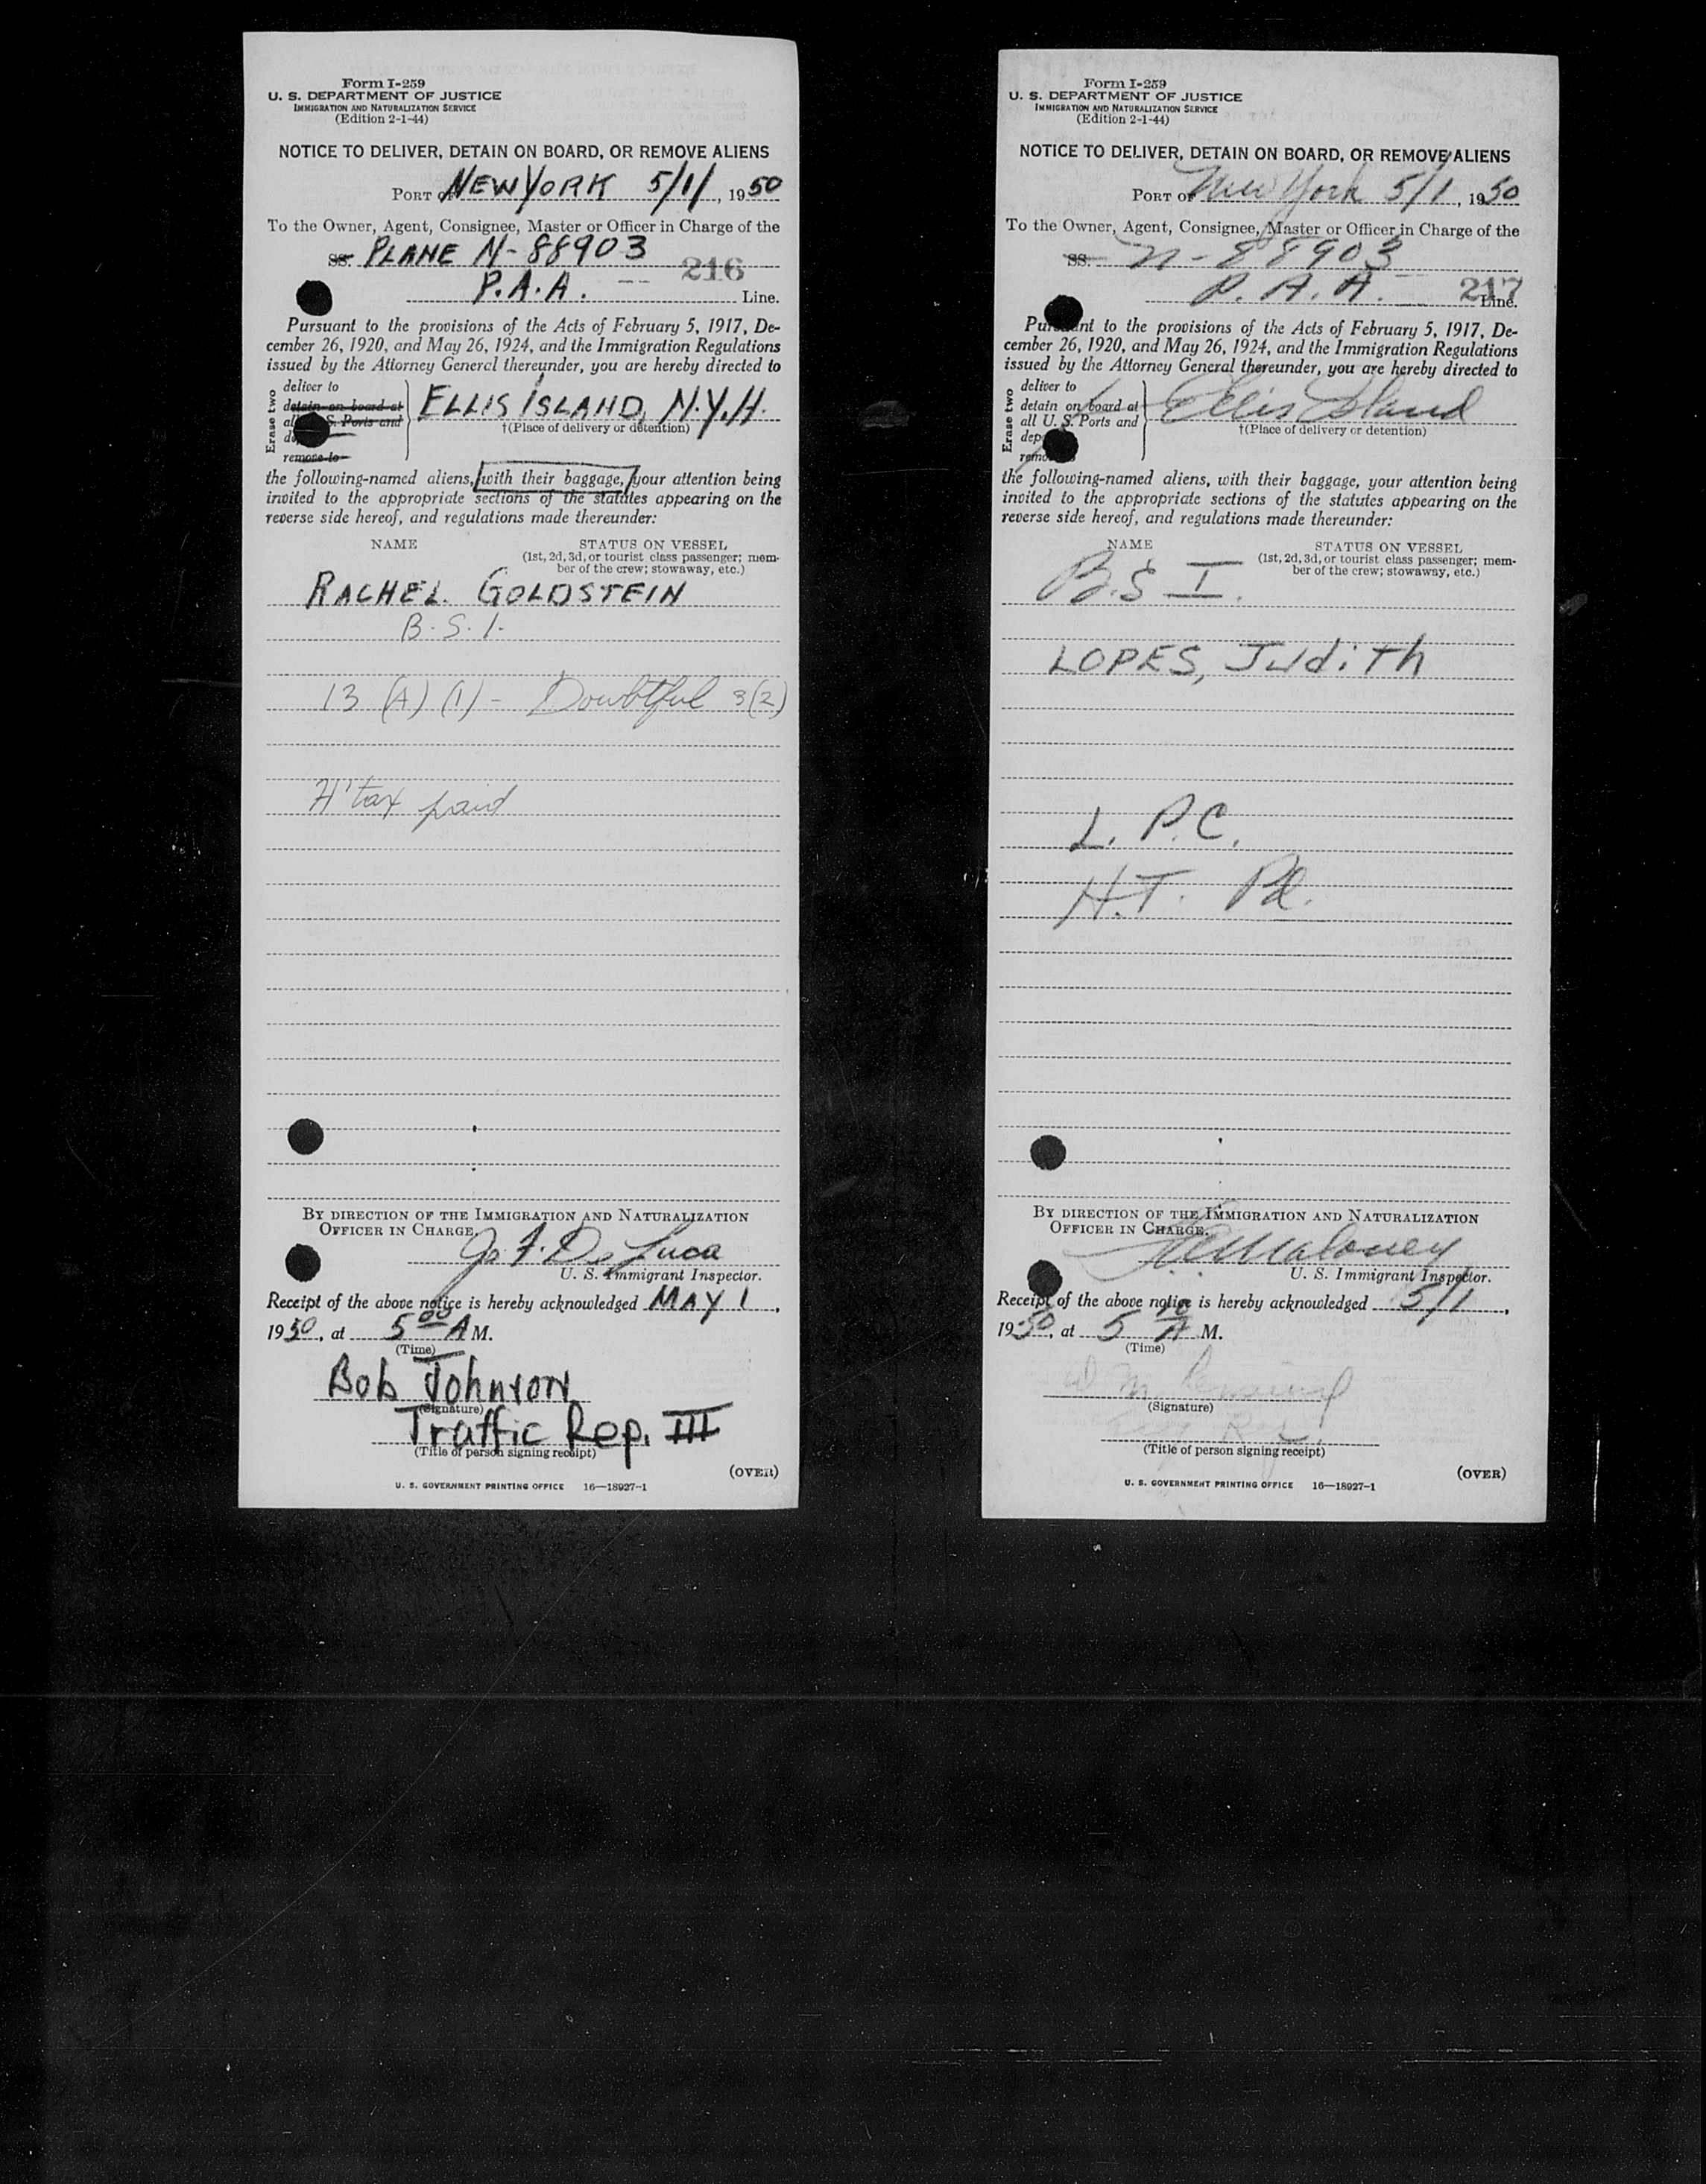 Form I-259
U. S. DEPARTMENT OF JUSTICE
IMMIGRATION AND NATURALIZATION SERVICE
(Edition 2-1-44)
NOTICE TO DELIVER, DETAIN ON BOARD, OR REMOVE ALIENS
PORT OF NEW YORK 5/1/, 1950
To the Owner, Agent, Consignee, Master or Officer in Charge of the
SS. PLANE N-88903
216
P.A.A. Line.
Pursuant to the provisions of the Acts of February 5, 1917, De-
cember 26, 1920, and May 26, 1924, and the Immigration Regulations
issued by the Attorney General thereunder, you are hereby directed to
Erase two
deliver to
detain on board at
all U. S. Ports and
remove to
ELLIS ISLAND, N.Y.H.
†(Place of delivery or detention)
the following-named aliens, with their baggage, your attention being
invited to the appropriate sections of the statutes appearing on the
reverse side hereof, and regulations made thereunder:
NAME STATUS ON VESSEL
(1st, 2d, 3d, or tourist class passenger; mem-
ber of the crew; stowaway, etc.)
RACHEL GOLDSTEIN
B.S.I.
13 (A) (1) - Doubtful 3(2)
H'tax paid
BY DIRECTION OF THE IMMIGRATION AND NATURALIZATION
OFFICER IN CHARGE.
De Luca
U. S. Immigrant Inspector.
Receipt of the above notice is hereby acknowledged MAY 1,
1950, at 5 00 A M.
(Time)
Bob Johnson
(Signature)
Traffic Rep. III
(Title of person signing receipt)
(OVER)
U. S. GOVERNMENT PRINTING OFFICE 16—18927-1
Form I-259
U. S. DEPARTMENT OF JUSTICE
IMMIGRATION AND NATURALIZATION SERVICE
(Edition 2-1-44)
NOTICE TO DELIVER, DETAIN ON BOARD, OR REMOVE ALIENS
PORT OF New York 5/1, 1950
To the Owner, Agent, Consignee, Master or Officer in Charge of the
SS. N-88903
217
P. A. A. Line.
Pursuant to the provisions of the Acts of February 5, 1917, De-
cember 26, 1920, and May 26, 1924, and the Immigration Regulations
issued by the Attorney General thereunder, you are hereby directed to
Erase two
deliver to
detain on board at
all U. S. Ports and
remove
Ellis Island
†(Place of delivery or detention)
the following-named aliens, with their baggage, your attention being
invited to the appropriate sections of the statutes appearing on the
reverse side hereof, and regulations made thereunder:
NAME STATUS ON VESSEL
(1st, 2d, 3d, or tourist class passenger; mem-
ber of the crew; stowaway, etc.)
B.S I.
LOPES, Judith
L. P.C.
H.T. Pd.
BY DIRECTION OF THE IMMIGRATION AND NATURALIZATION
OFFICER IN CHARGE.
Maloney
U. S. Immigrant Inspector.
Receipt of the above notice is hereby acknowledged 5/1,
1950, at 5 10 A M.
(Time)
(Signature)
(Title of person signing receipt)
(OVER)
U. S. GOVERNMENT PRINTING OFFICE 16—18927-1